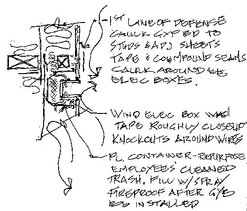 1ST LINE OF DEFENSE
CAULK GYP BD TO
STUDS & ADJ SHEETS
TAPE & COMPOUND SEAMS
CAULK AROUND
ELEC BOXES.
WIND ELEC BOX W/
TAPE ROUGHLY CLOSING
KNOCKOUTS AROUND WIRES
PL. CONTAINER - REPURPOSE
EMPLOYEES' CLEANED
TRASH. FILL W/ SPRAY
FIREPROOF AFTER G/B
INSTALLED